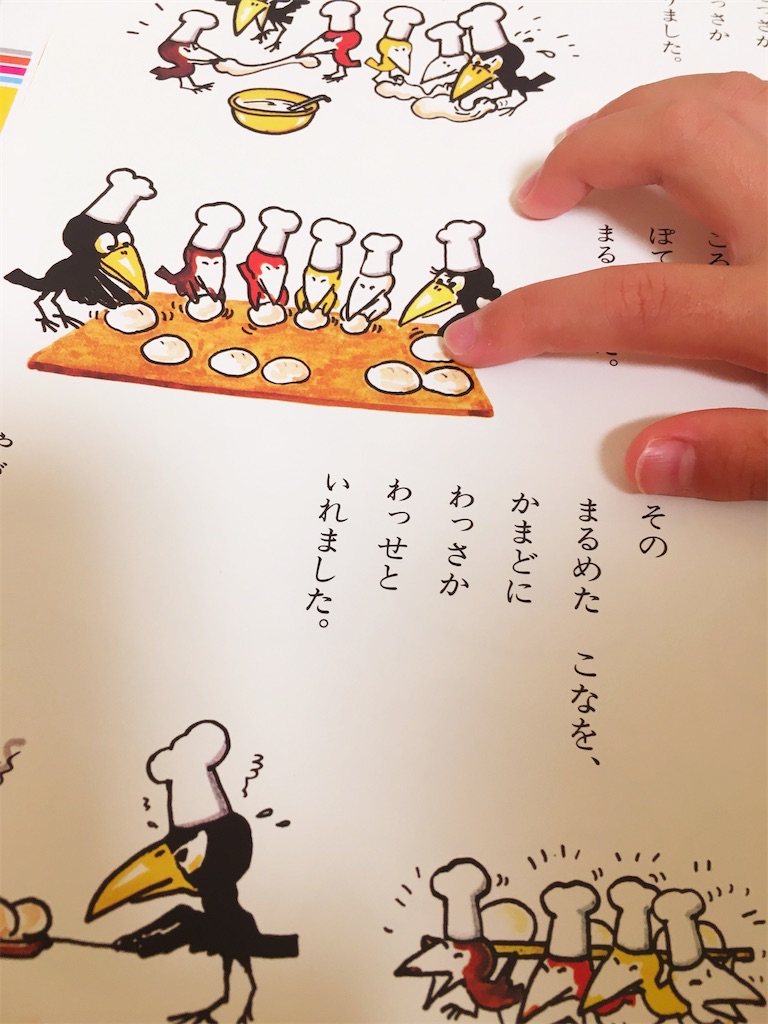 っさか
ました。
ぽて
まる
その
まるめた こなを、
かまどに
わっさか
わっせと
いれました。